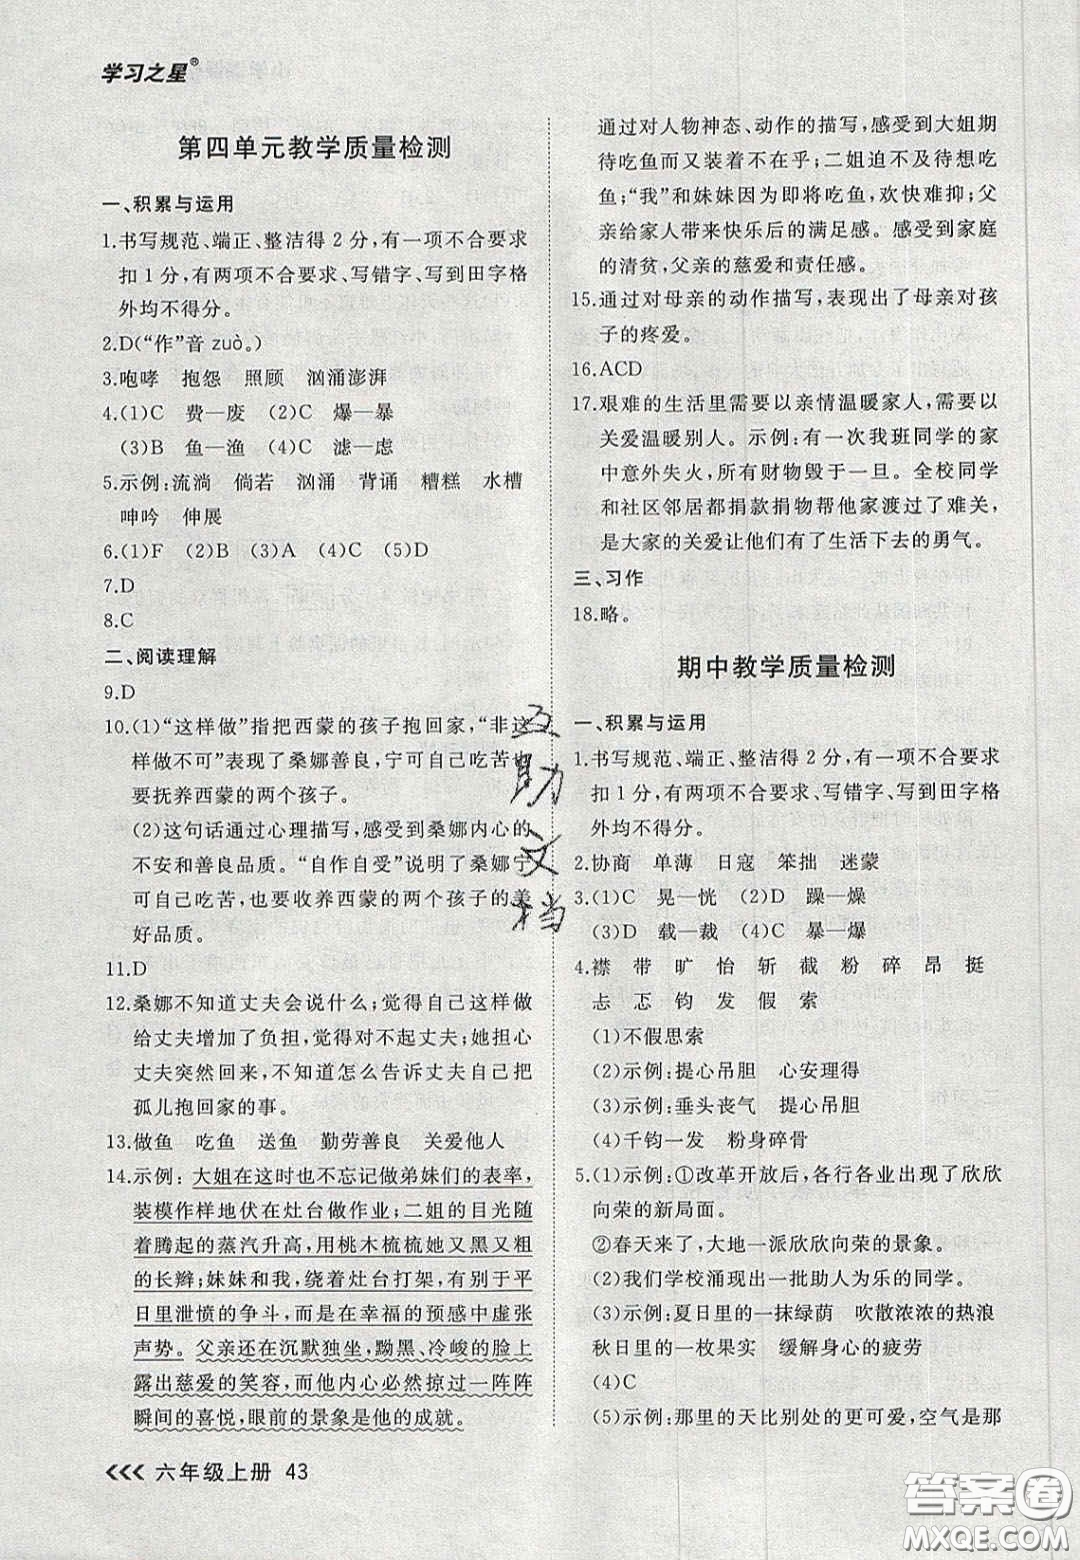 学习之星®
第四单元教学质量检测
一、积累与运用
1.书写规范、端正、整洁得2分,有一项不合要求
扣1分,有两项不合要求、写错字、写到田字格
外均不得分。
2.D(“作”音 zuò。)
3.咆哮 抱怨 照顾 汹涌澎湃
4.(1)C 费—废 (2)C 爆—暴
(3)B 鱼—渔 (4)C 滤—虑
5.示例:流淌 倘若 汹涌 背诵 糟糕 水槽
呻吟 伸展
6.(1)F (2)B (3)A (4)C (5)D
7.D
8.C
二、阅读理解
9.D
10.(1)“这样做”指把西蒙的孩子抱回家,“非这
样做不可”表现了桑娜善良,宁可自己吃苦也
要抚养西蒙的两个孩子。
(2)这句话通过心理描写,感受到桑娜内心的
不安和善良品质。“自作自受”说明了桑娜宁
可自己吃苦,也要收养西蒙的两个孩子的美
好品质。
11.D
12.桑娜不知道丈夫会说什么;觉得自己这样做
给丈夫增加了负担,觉得对不起丈夫;她担心
丈夫突然回来,不知道怎么告诉丈夫自己把
孤儿抱回家的事。
13.做鱼 吃鱼 送鱼 勤劳善良 关爱他人
14.示例:大姐在这时也不忘记做弟妹们的表率,
装模作样地伏在灶台做作业;二姐的目光随
着腾起的蒸汽升高,用桃木梳梳她又黑又粗
的长辫;妹妹和我,绕着灶台打架,有别于平
日里泄愤的争斗,而是在幸福的预感中虚张
声势。父亲还在沉默独坐,黝黑、冷峻的脸上
露出慈爱的笑容,而他内心必然掠过一阵阵
瞬间的喜悦,眼前的景象是他的成就。
通过对人物神态、动作的描写,感受到大姐期
待吃鱼而又装着不在乎;二姐迫不及待吃
鱼;“我”和妹妹因为即将吃鱼,欢快难抑;父
亲给家人带来快乐后的满足感。感受到家庭
的清贫,父亲的慈爱和责任感。
15.通过对母亲的动作描写,表现出了母亲对孩
子的疼爱。
16.ACD
17.艰难的生活里需要以亲情温暖家人,需要以
关爱温暖别人。示例:有一次我班同学的家
中意外失火,所有财物毁于一旦。全校同学
和社区邻居都捐款捐物帮他家渡过了难关,
是大家的关爱让他们有了生活下去的勇气。
三、习作
18.略。
期中教学质量检测
一、积累与运用
1.书写规范、端正、整洁得2分,有一项不合要求
扣1分,有两项不合要求、写错字、写到田字格
外均不得分。
2.协商 单薄 日寇 笨拙 迷蒙
3.(1)C 晃—恍 (2)D 躁—燥
(3)D 载—裁 (4)C 暴—爆
4.襟 带 旷 怡 斩 截 粉 碎 昂 挺
忐 忑 钧 发 假 索
(1)不假思索
(2)示例:提心吊胆 心安理得
(3)示例:垂头丧气 提心吊胆
(4)千钧一发 粉身碎骨
5.(1)示例:①改革开放后,各行各业出现了欣欣
向荣的新局面。
②春天来了,大地一派欣欣向荣的景象。
(2)我们学校涌现出一批助人为乐的同学。
(3)示例:夏日里的一抹绿荫 吹散浓浓的热浪
秋日里的一枚果实 缓解身心的疲劳
(4)C
(5)示例:那里的天比别处的更可爱,空气是那
互助文档
六年级上册 43
答案圈
MXQE.COM